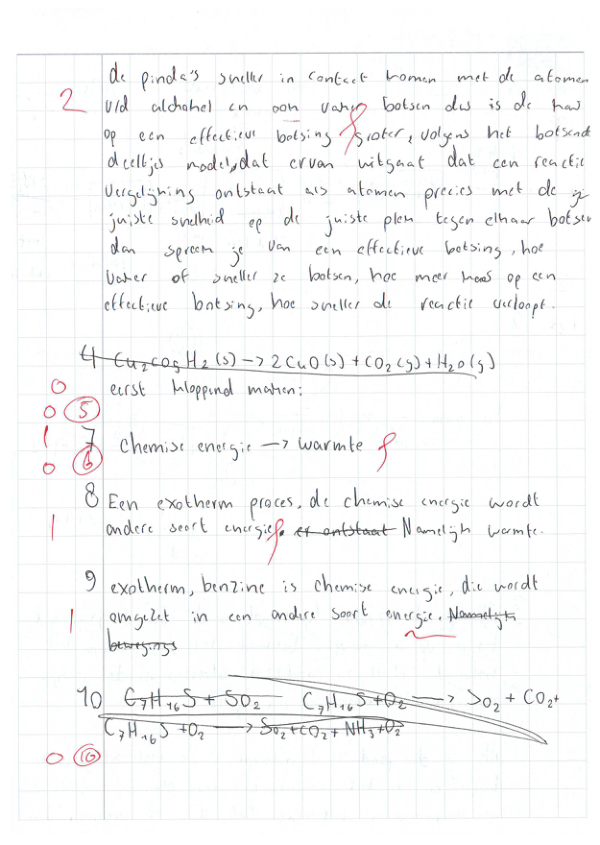 de pinda's sneller in contact komen met de atomen
2 v/d alchahol en oon vaker botsen dus is de kans
op een effectieve botsing groter, volgens het botsende
deeltjes model, dat ervan uitgaat dat een reactie
vergelijking ontstaat als atomen precies met de
juiste snelheid op de juiste plek tegen elkaar botsen
dan spreek je van een effectieve botsing, hoe
vaker of sneller ze botsen, hoe meer kans op een
effectieve botsing, hoe sneller de reactie verloopt.
4 Cu2CO5H2(s) → 2CuO(s) + CO2(g) + H2O(g)
0 eerst kloppend maken:
0 5
1 7 Chemise energie → warmte
0 6
8 Een exotherm proces, de chemise energie wordt
1 andere soort energie, er ontstaat Namelijk warmte.
9 exotherm, benzine is chemise energie, die wordt
1 omgezet in een andere soort energie. Namelijk
bewegings
10 C7H16S + SO2 C7H16S + O2 → SO2 + CO2 +
C7H16S + O2 → SO2 + CO2 + NH3 + O2
0 10